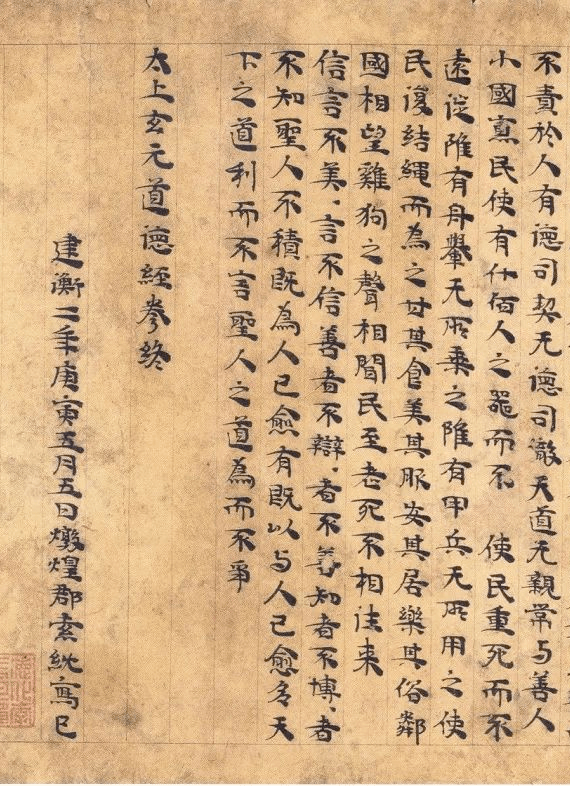 不責於人有德司契无德司徹天道无親常与善人
小國寡民使有什佰人之器而不　使民重死而不
遠徙雖有舟轝无所乘之雖有甲兵无所用之使
民復結繩而為之甘其食美其服安其居樂其俗鄰
國相望雞狗之聲相聞民至老死不相往来
信言不美、言不信善者不辯、者不善知者不博、者
不知聖人不積既為人己愈有既以与人己愈多天
下之道利而不害聖人之道為而不爭
太上玄元道德經卷終
建衡二年庚寅五月五日燉煌郡索紞寫已